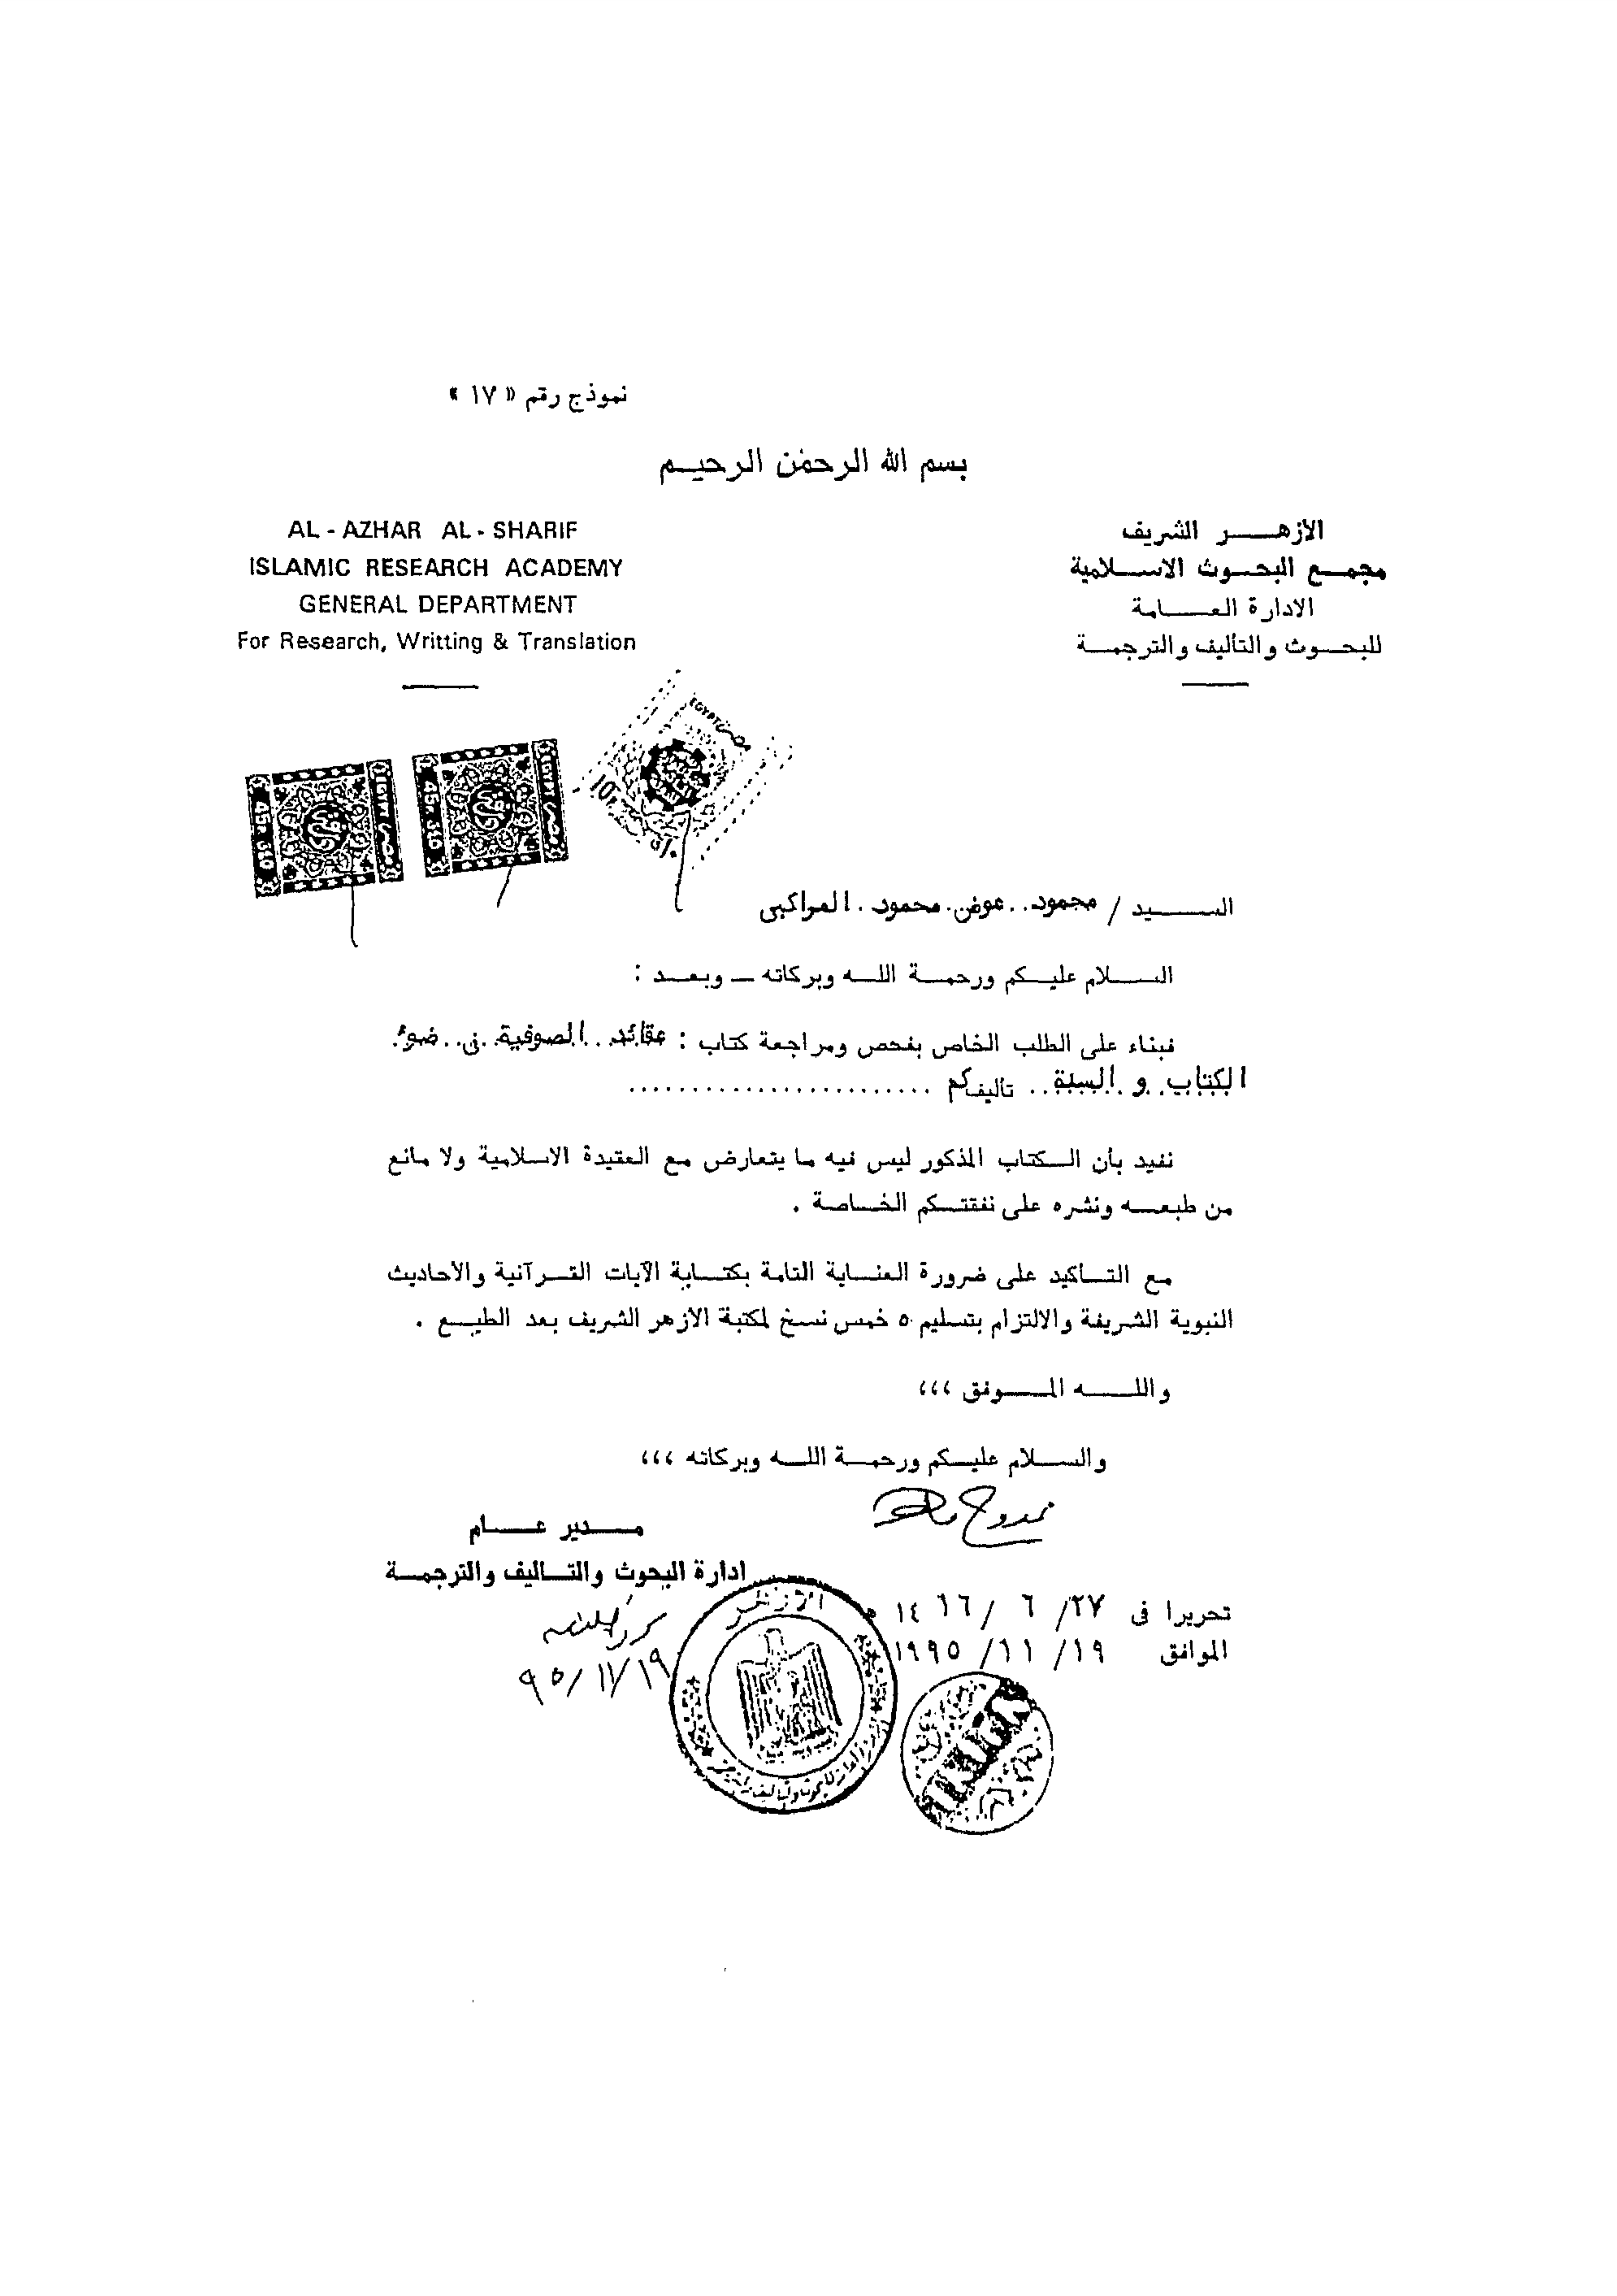 نموذج رقم « ١٧ »
بسم الله الرحمٰن الرحيم
الأزهر الشريف
مجمع البحوث الاسلامية
الادارة العامة
للبحوث والتأليف والترجمة
AL - AZHAR AL - SHARIF
ISLAMIC RESEARCH ACADEMY
GENERAL DEPARTMENT
For Research, Writting & Translation
السيد / محمود . . عوض . محمود . . المراكبى
السلام عليكم ورحمة الله وبركاته ــ وبعد :
فبناء على الطلب الخاص بفحص ومراجعة كتاب : عقائد . . الصوفية . فى . . ضوء
الكتاب و السنة . . تأليفكم . . . . . . . . . . . . . . . . . . . . . . . .
نفيد بأن الكتاب المذكور ليس فيه ما يتعارض مع العقيدة الاسلامية ولا مانع
من طبعه ونشره على نفقتكم الخاصة .
مع التأكيد على ضرورة العناية التامة بكتابة الآيات القرآنية والأحاديث
النبوية الشريفة والالتزام بتسليم ٥ خمس نسخ لمكتبة الأزهر الشريف بعد الطبع .
والله الموفق ،،،
والسلام عليكم ورحمة الله وبركاته ،،،
مدير عام
ادارة البحوث والتأليف والترجمة
٩٥/١١/١٩
تحريرا فى ٢٧/ ٦ /١٤١٦ هـ
الموافق ١٩/ ١١ /١٩٩٥
الأزهر